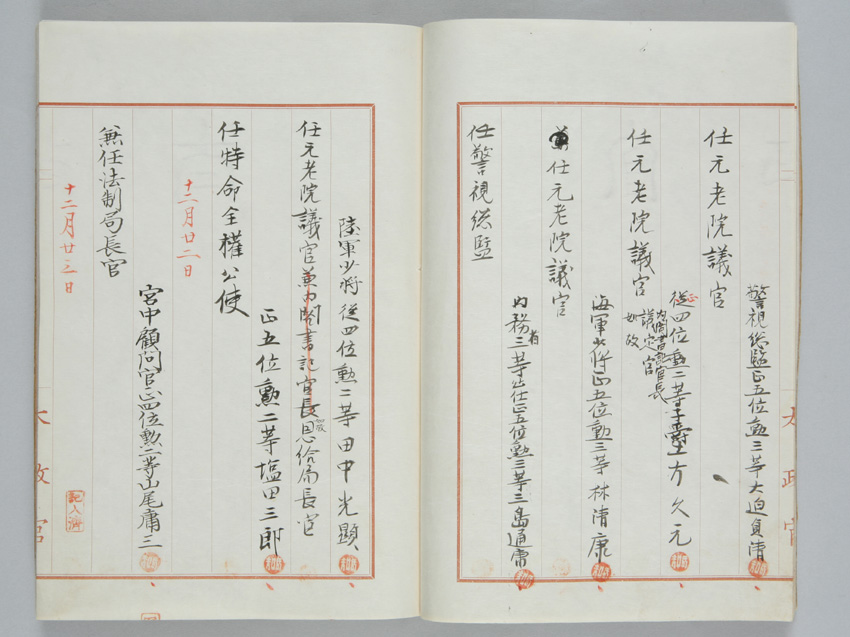 警視総監正五位勲三等大迫貞清
任元老院議官
従四位勲二等子爵土方久元
正
内閣書記官長
議定官
如故
任元老院議官
海軍少将正五位勲三等林清康
任元老院議官
内務省三等出仕正五位勲三等三島通庸
任警視総監
陸軍少将従四位勲二等田中光顕
任元老院議官兼内閣書記官長恩給局長官
如故
正五位勲二等塩田三郎
任特命全權公使
十二月廿二日
宮中顧問官正四位勲二等山尾庸三
兼任法制局長官
十二月廿三日
太政官
記入済